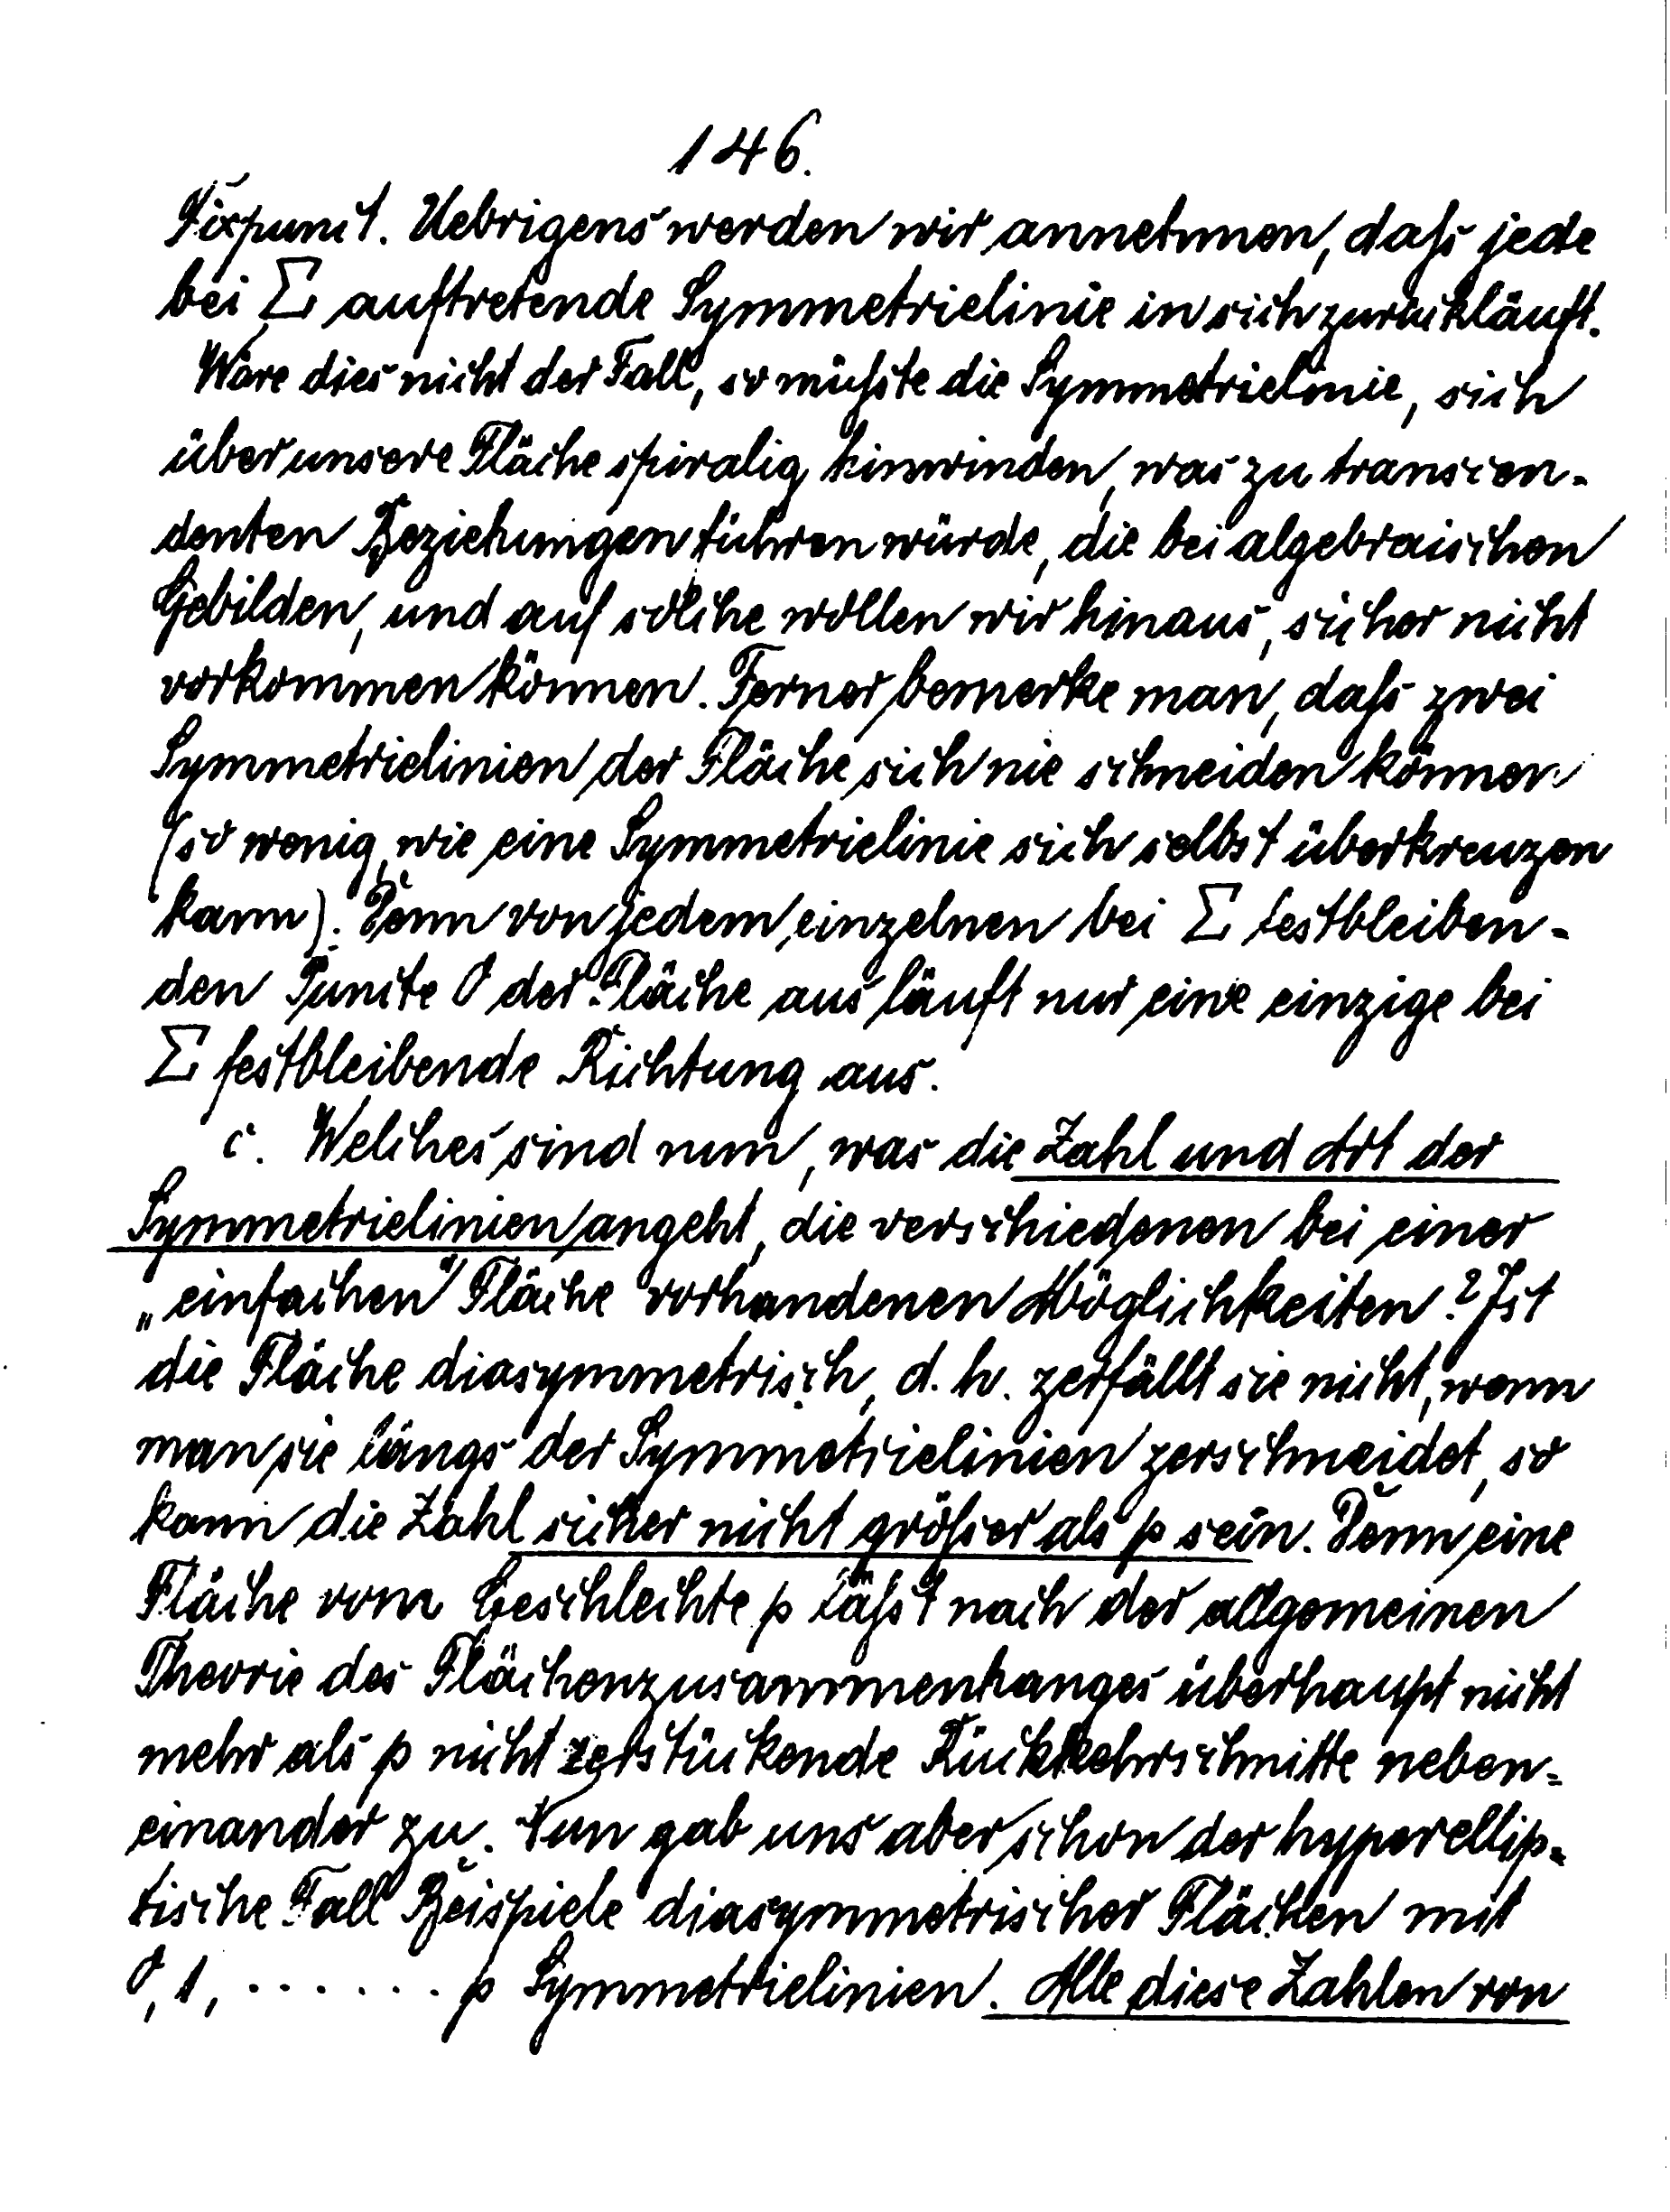 146.
Fixpunct. Uebrigens werden wir annehmen, daſs jede
bei Σ auftretende Symmetrielinie in sich zurückläuft.
Wäre dies nicht der Fall, so müſste die Symmetrielinie, sich
über unsere Fläche spiralig hinwinden, was zu transcen-
denten Beziehungen führen würde, die bei algebraischen
Gebilden, und auf solche wollen wir hinaus, sicher nicht
vorkommen können. Ferner bemerke man, daſs zwei
Symmetrielinien der Fläche sich nie schneiden können
(so wenig, wie eine Symmetrielinie sich selbst überkreuzen
kann). Denn von jedem einzelnen bei Σ festbleiben-
den Puncte O der Fläche aus läuft nur eine einzige bei
Σ festbleibende Richtung aus.
c. Welches sind nun, was die Zahl und Art der
Symmetrielinien angeht, die verschiedenen bei einer
„einfachen" Fläche vorhandenen Möglichkeiten? Ist
die Fläche diasymmetrisch, d. h. zerfällt sie nicht, wenn
man sie längs der Symmetrielinien zerschneidet, so
kann die Zahl sicher nicht gröſser als p sein. Denn eine
Fläche vom Geschlechte p läſst nach der allgemeinen
Theorie des Flächenzusammenhanges überhaupt nicht
mehr als p nicht zerstückende Rückkehrschnitte neben-
einander zu. Nun gab uns aber schon der hyperellip-
tische Fall Beispiele diasymmetrischer Flächen mit
0, 1, . . . . . . . p Symmetrielinien. Alle diese Zahlen von